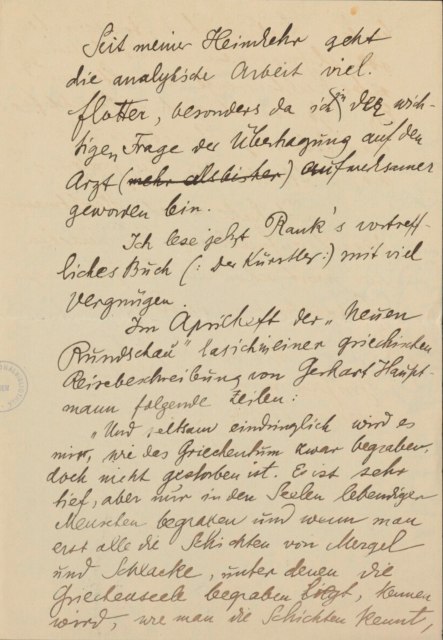 Seit meiner Heimkehr geht
die analytische Arbeit viel
flotter, besonders da ich in der wich-
tigen Frage der Übertragung auf den
Arzt (mehr als bisher) aufmerksamer
geworden bin.
Ich lese jetzt Rank's vortreff-
liches Buch (: Der Künstler :) mit viel
Vergnügen.
Im Aprilheft der „Neuen
Rundschau" las ich in einer griechischen
Reisebeschreibung von Gerhart Haupt-
mann folgende Zeilen:
„Und seltsam eindringlich wird es
mir, wie das Griechentum zwar begraben,
doch nicht gestorben ist. Es ist sehr
tief, aber nur in den Seelen lebendiger
Menschen begraben und wenn man
erst alle die Schichten von Mergel
und Schlacke, unter denen die
Griechenseele begraben liegt, kennen
wird, wie man die Schichten kennt,